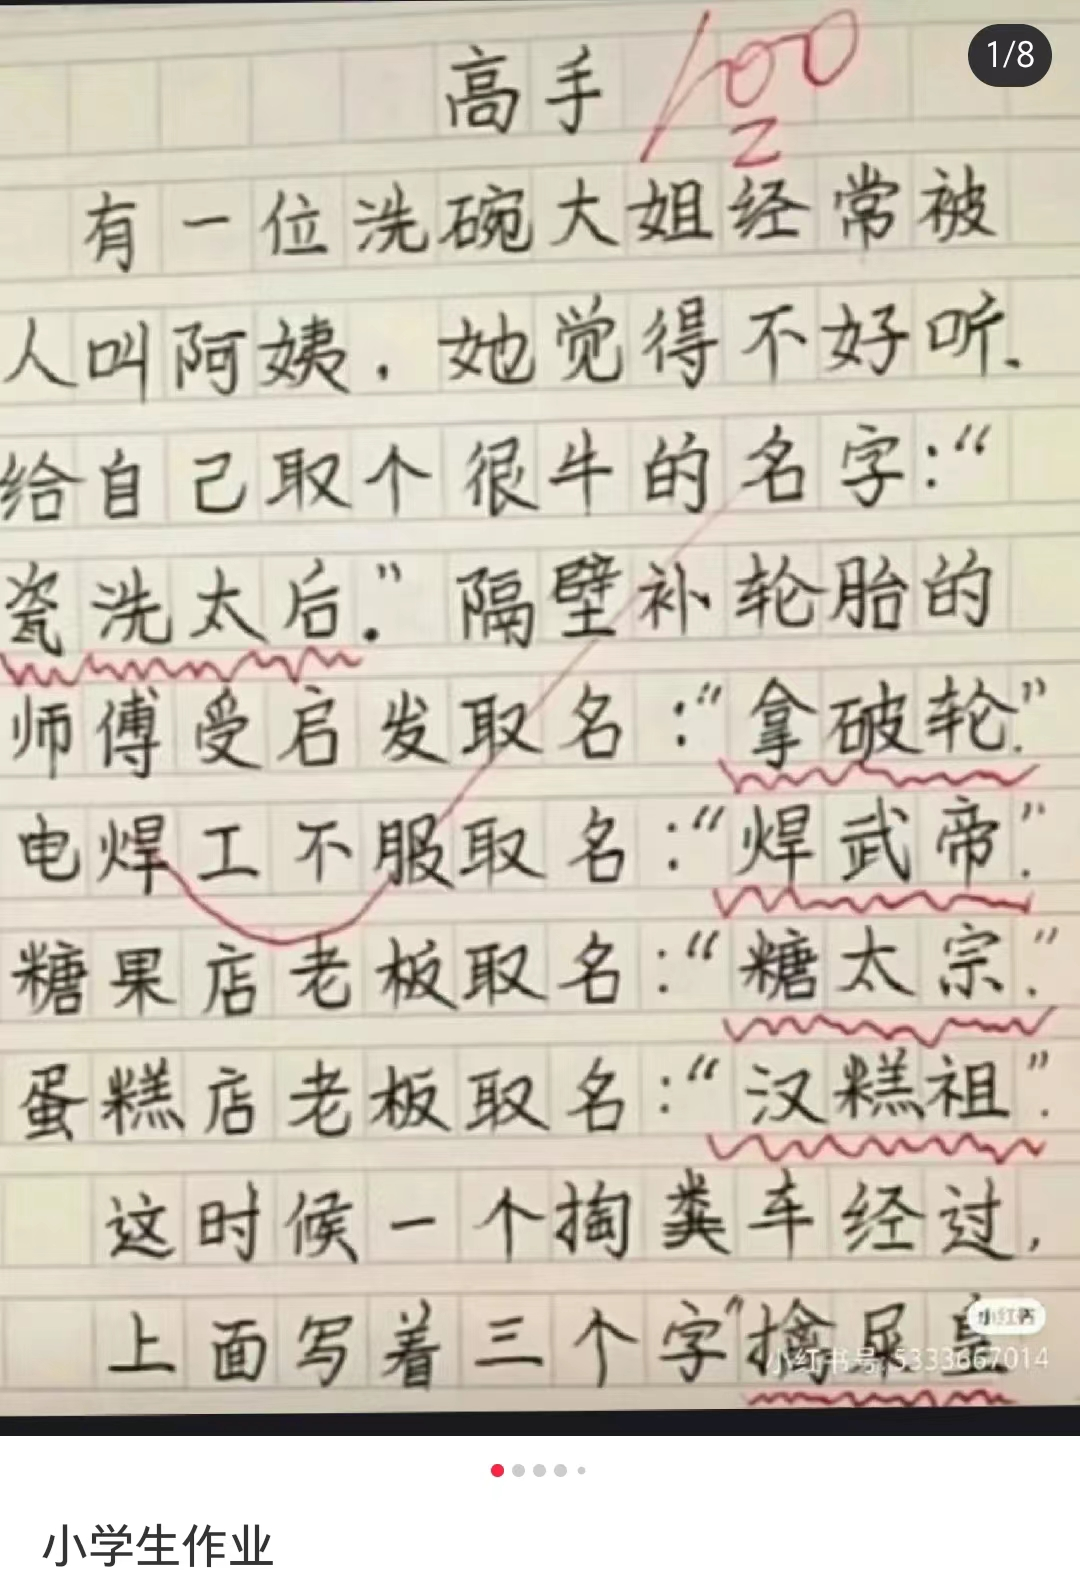 1/8
高手
100
有一位洗碗大姐经常被
人叫阿姨，她觉得不好听.
给自己取个很牛的名字:“
瓷洗太后.”隔壁补轮胎的
师傅受启发取名:“拿破轮.”
电焊工不服取名:“焊武帝.”
糖果店老板取名:“糖太宗.”
蛋糕店老板取名:“汉糕祖.”
这时候一个掏粪车经过,
上面写着三个字“擒屎皇
小红书
小红书号:5333667014
小学生作业